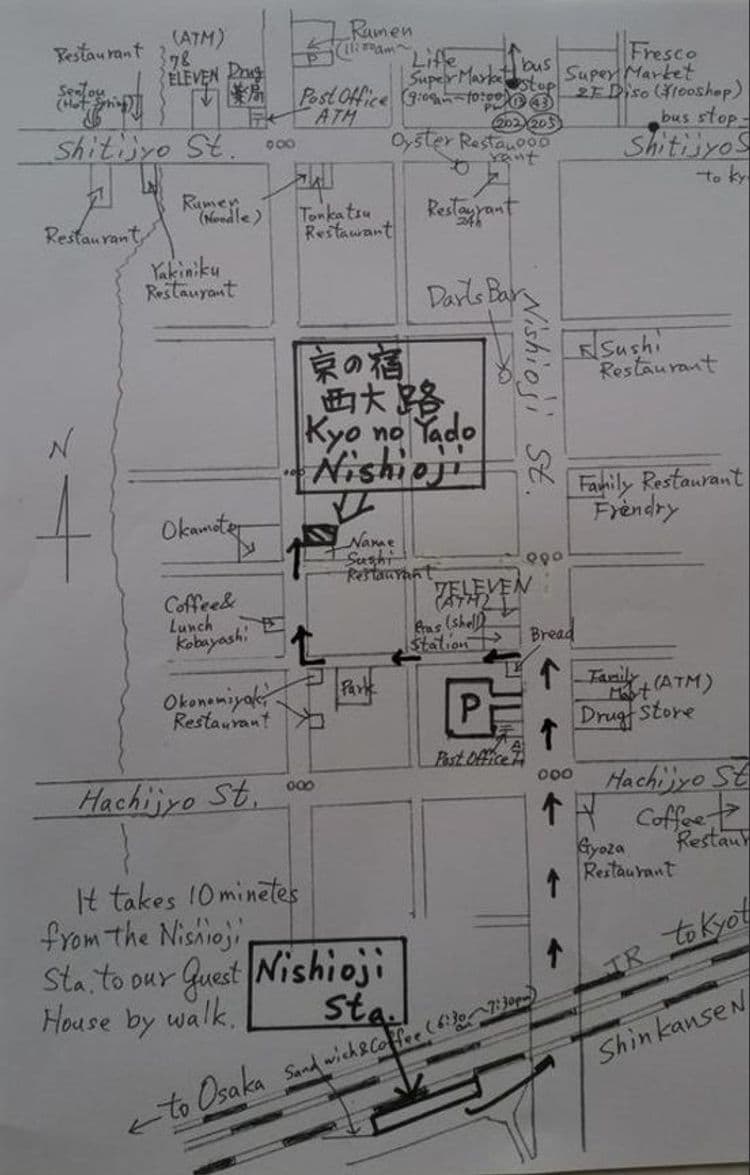 Restaurant
(ATM)
78
ELEVEN
Drug
薬局
Sentou
(Hot Spring)
Rumen
(11:00am~
P
Post Office
ATM
〒
Life
Super Market
(9:00am~10:00pm)
bus
stop
13 43
202 205
Fresco
Super Market
2F Diso (¥100shop)
bus stop
Shitijyo St.
Oyster Restau
rant
Shitijyo S
to Ky
Restaurant
Yakiniku
Restaurant
Rumen
(Noodle)
Tonkatsu
Restaurant
Restaurant
24h
Darts Bar
Nishioji St.
Sushi
Restaurant
京の宿
西大路
Kyo no Yado
Nishioji
N
Family Restaurant
Frendry
Okamoto
Name
Sushi
Restaurant
7ELEVEN
(ATM)
Coffee&
Lunch
Kobayashi
Gas (shell)
Station
Bread
Okonomiyaki
Restaurant
Park
P
〒
Post Office
Family
Mart (ATM)
Drug Store
Hachijyo St.
Hachijyo St
Coffee
Restaur
Gyoza
Restaurant
It takes 10 minetes
from the Nishioji
Sta. to our Guest
House by walk.
Nishioji
Sta.
Sandwich&Coffee (6:30am~7:30pm)
JR to Kyot
to Osaka
Shinkansen